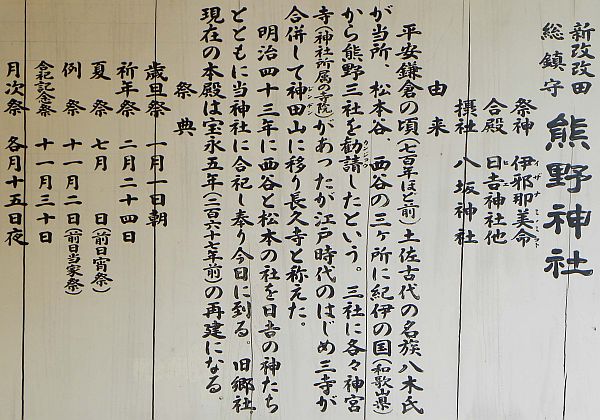 新改改田
総鎮守
熊野神社
祭神 伊邪那美命
イザナミノミコト
合殿 日吉神社他
ヒエ
摂社 八坂神社
由来
平安鎌倉の頃(七百年ほど前)土佐古代の名族八木氏
が当所、松本谷、西谷の三ヶ所に紀伊の国(和歌山県)
から熊野三社を勧請したという。三社に各々神宮
カンジョウ
寺(神社所属の寺院)があったが江戸時代のはじめ三寺が
合併して神田山に移り長久寺と称えた。
明治四十三年に西谷と松本の社を日吉の神たち
とともに当神社に合祀し奉り今日に到る。旧郷社
現在の本殿は宝永五年(二百六十七年前)の再建になる。
祭典
歳旦祭 一月一日朝
祈年祭 二月二十四日
夏祭 七月 日(前日宵祭)
例祭 十一月二日(前日当家祭)
合祀記念祭 十一月三十日
月次祭 各月十五日夜